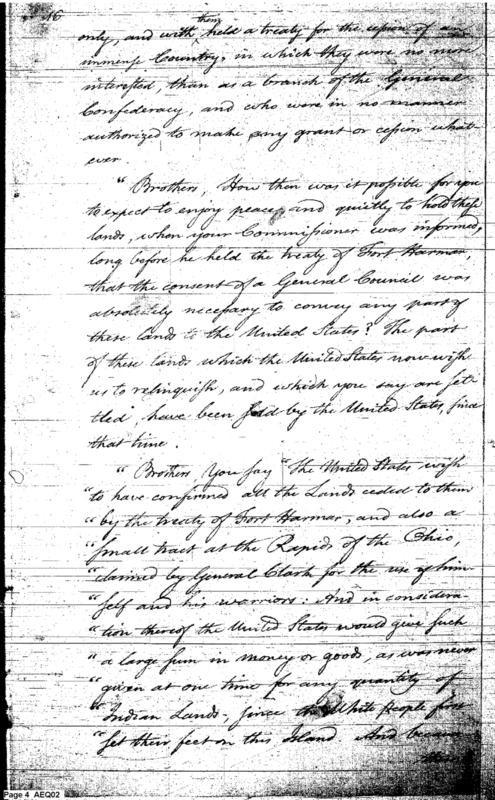 16
them
only, and with held a treaty for the cession of an
immense Country, in which they were no more
interested, than as a branch of the General
Confederacy, and who were in no manner
authorized to make any grant or cession what-
ever
" Brothers, How then was it possible for you
to expect to enjoy peace, and quietly to hold these
lands, when your Commissioner was informed,
long before he held the treaty of Fort Harmar,
that the consent of a General Council was
absolutely necessary to convey any part of
these lands to the United States? The part
of these lands which the United States now wish
us to relinquish, and which you say are set-
tled, have been sold by the United States, since
that time.
" Brothers You say "The United States wish
" to have confirmed all the Lands ceded to them
" by the treaty of Fort Harmar, and also a
" small tract at the Rapids of the Ohio,
" claimed by General Clark for the use of him
" self and his warriors: And in considera-
" tion thereof the United States would give such
" a large sum in money or goods, as was never
" given at one time for any quantity of
" Indian Lands, since the White People first
" set their feet on this Island. And because
Page 4 AEQ02